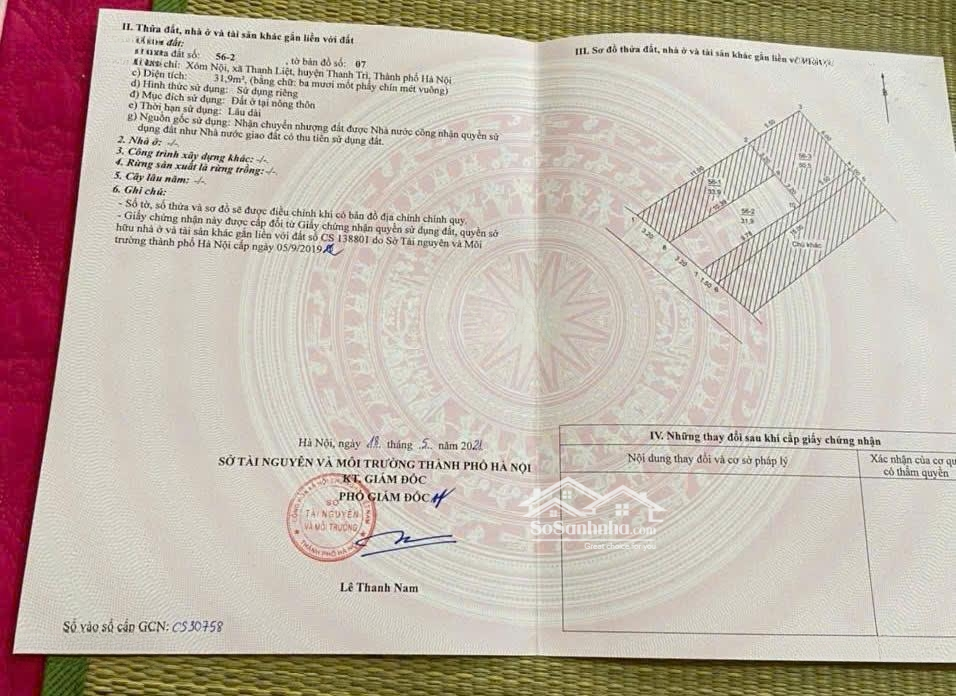 II. Thửa đất, nhà ở và tài sản khác gắn liền với đất
đất:
đất số: 56-2 , tờ bản đồ số: 07
chỉ: Xóm Nội, xã Thanh Liệt, huyện Thanh Trì, Thành phố Hà Nội
c) Diện tích: 31,9m², (bằng chữ: ba mươi mốt phẩy chín mét vuông)
d) Hình thức sử dụng: Sử dụng riêng
đ) Mục đích sử dụng: Đất ở tại nông thôn
e) Thời hạn sử dụng: Lâu dài
g) Nguồn gốc sử dụng: Nhận chuyển nhượng đất được Nhà nước công nhận quyền sử
dụng đất như Nhà nước giao đất có thu tiền sử dụng đất.
2. Nhà ở: -/-.
3. Công trình xây dựng khác: -/-.
4. Rừng sản xuất là rừng trồng: -/-.
5. Cây lâu năm: -/-.
6. Ghi chú:
- Số tờ, số thửa và sơ đồ sẽ được điều chỉnh khi có bản đồ địa chính chính quy.
- Giấy chứng nhận này được cấp đổi từ Giấy chứng nhận quyền sử dụng đất, quyền sở
hữu nhà ở và tài sản khác gắn liền với đất số CS 138801 do Sở Tài nguyên và Môi
trường thành phố Hà Nội cấp ngày 05/9/2019
Hà Nội, ngày 18 tháng 5 năm 2021
SỞ TÀI NGUYÊN VÀ MÔI TRƯỜNG THÀNH PHỐ HÀ NỘI
KT. GIÁM ĐỐC
PHÓ GIÁM ĐỐC
SỞ
TÀI NGUYÊN
VÀ MÔI TRƯỜNG
THÀNH PHỐ HÀ NỘI
Lê Thanh Nam
Số vào sổ cấp GCN: CS30758
III. Sơ đồ thửa đất, nhà ở và tài sản khác gắn liền
B
3
2
1
56-1
33,9
56-2
31,9
56-3
50,5
10,39
9,78
10
Chủ khác
3,20
3,20
1,50
IV. Những thay đổi sau khi cấp giấy chứng nhận
Nội dung thay đổi và cơ sở pháp lý
Xác nhận của cơ qu
có thẩm quyền
SoSanhnha.com
Great choice for you